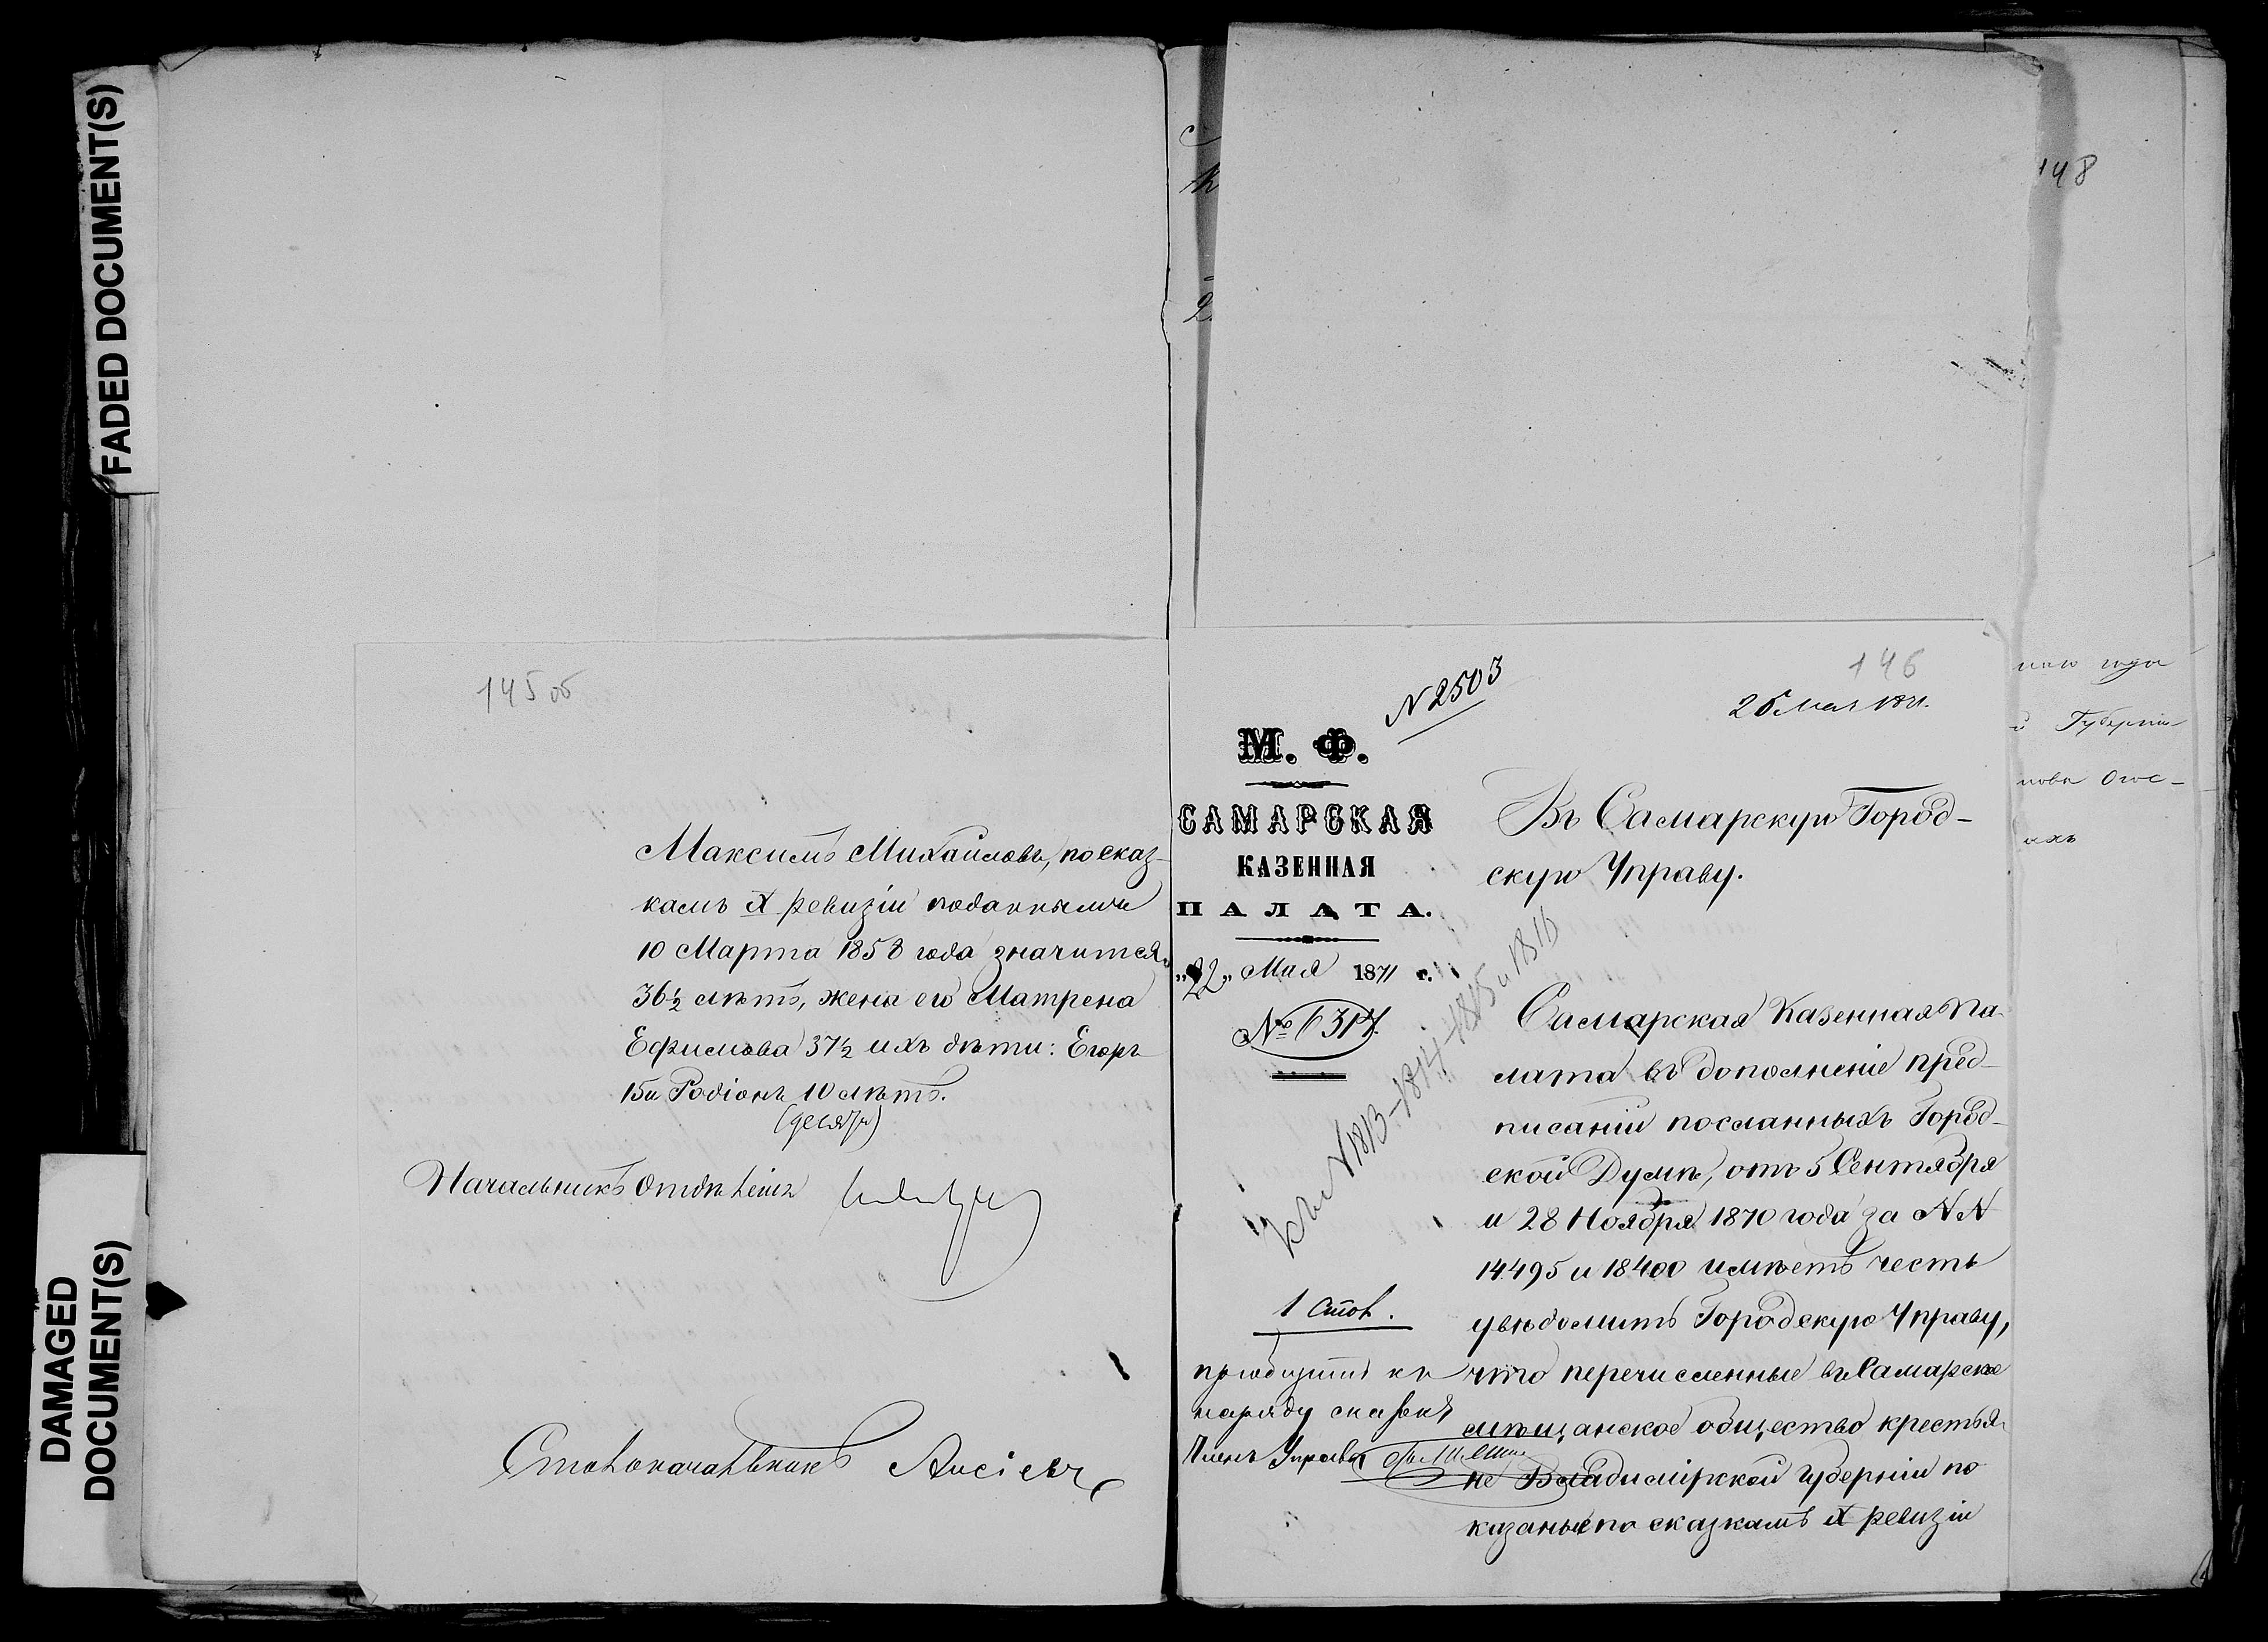 FADED DOCUMENT(S)
DAMAGED
DOCUMENT(S)
145 об
Максимъ Михайловъ, по сказ-
камъ X ревизіи поданными
10 Марта 1858 года значится
36½ лѣтъ, жена его Матрена
Ефимова 37½ ихъ дѣти: Егоръ
15 и Родіонъ 10 лѣтъ.
(десяти)
Начальникъ Отдѣленія
Столоначальникъ
N 2503
М. Ф.
САМАРСКАЯ
КАЗЕННАЯ
ПАЛАТА.
„22„ Мая 1871 г.
№ 6317.
1 Стол.
наряду сказокъ
Членъ Управы
къ N 1813-1814-1815 и 1816
146
25 Мая 1871.
Въ Самарскую Город-
скую Управу.
Самарская Казенная Па-
лата въ дополненіе пред-
писаній посланныхъ Город-
ской Думѣ, отъ 5 Сентября
и 28 Ноября 1870 года за NN
14495 и 18400 имѣетъ честь
увѣдомить Городскую Управу,
что перечисленные въ Самарское
мѣщанское общество крестья-
не Владимірской губерніи по
казаные по сказкамъ X ревизіи
148
года
Губерніи